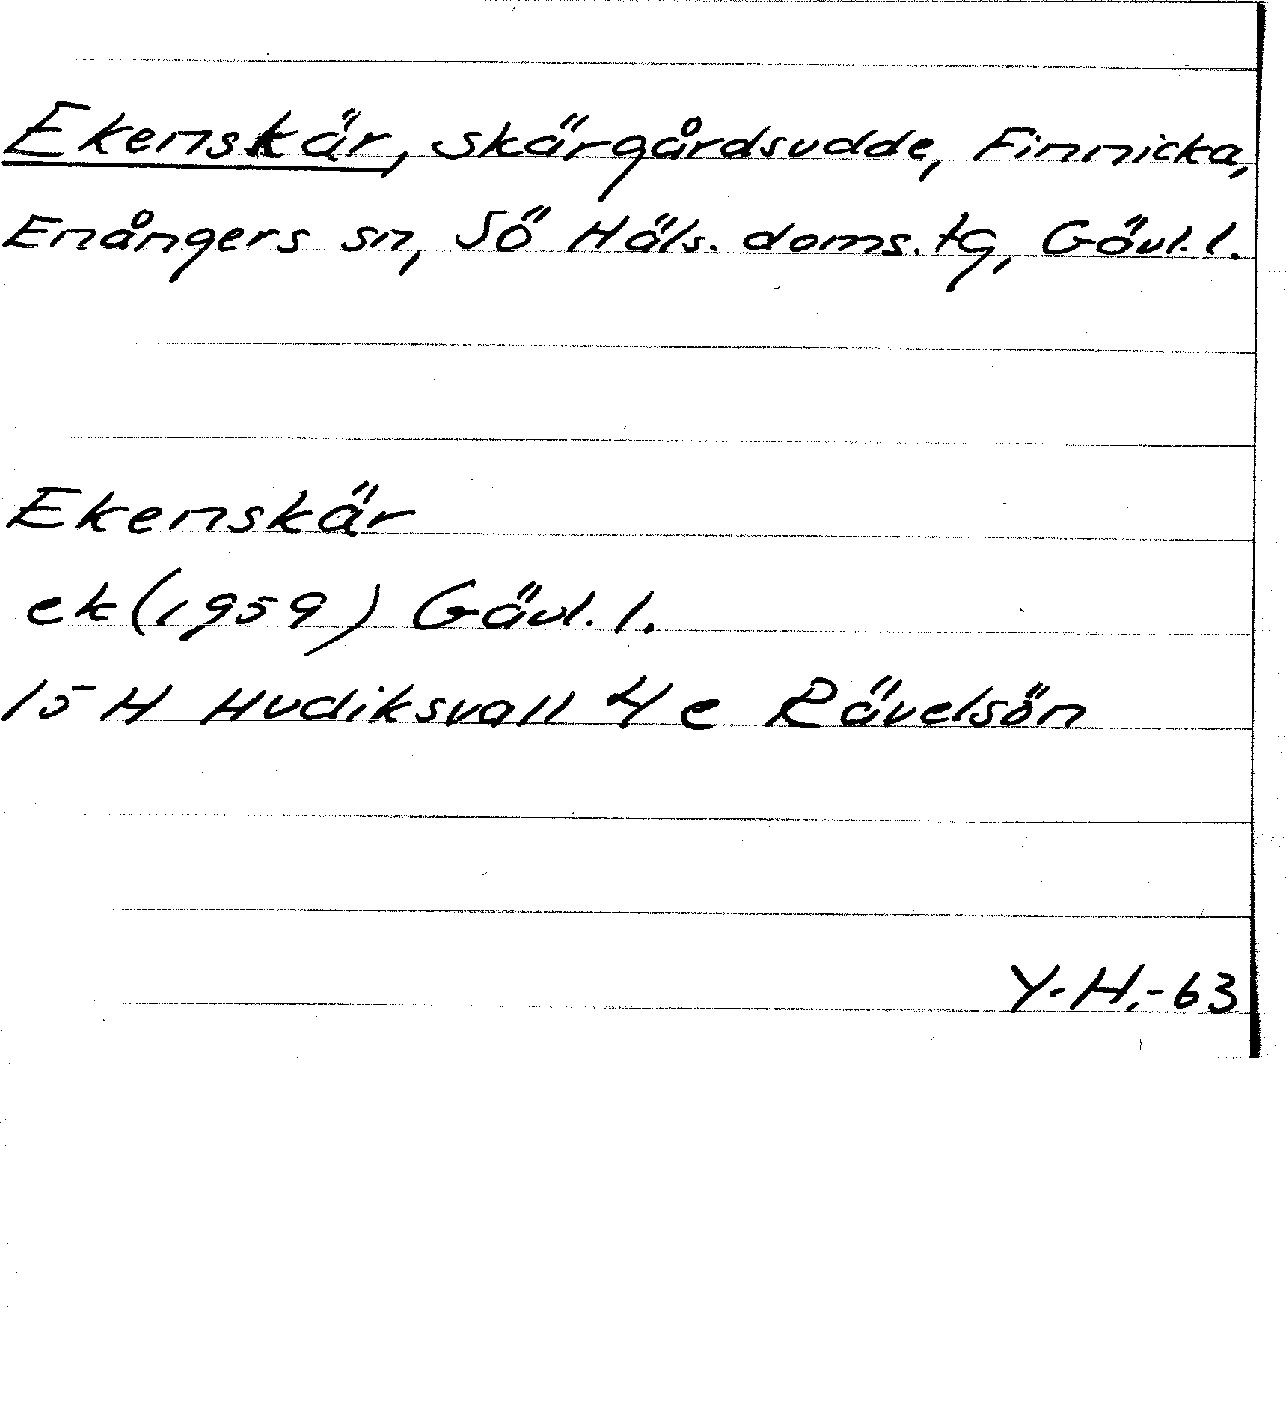 Ekenskär, skärgårdsudde, Finnicka,
Enångers sn, Sö Häls. doms. tg, Gävl. l.
Ekenskär
ek (1959) Gävl. l.
15 H Hudiksvall 4 e Rävelsön
Y. H. - 63